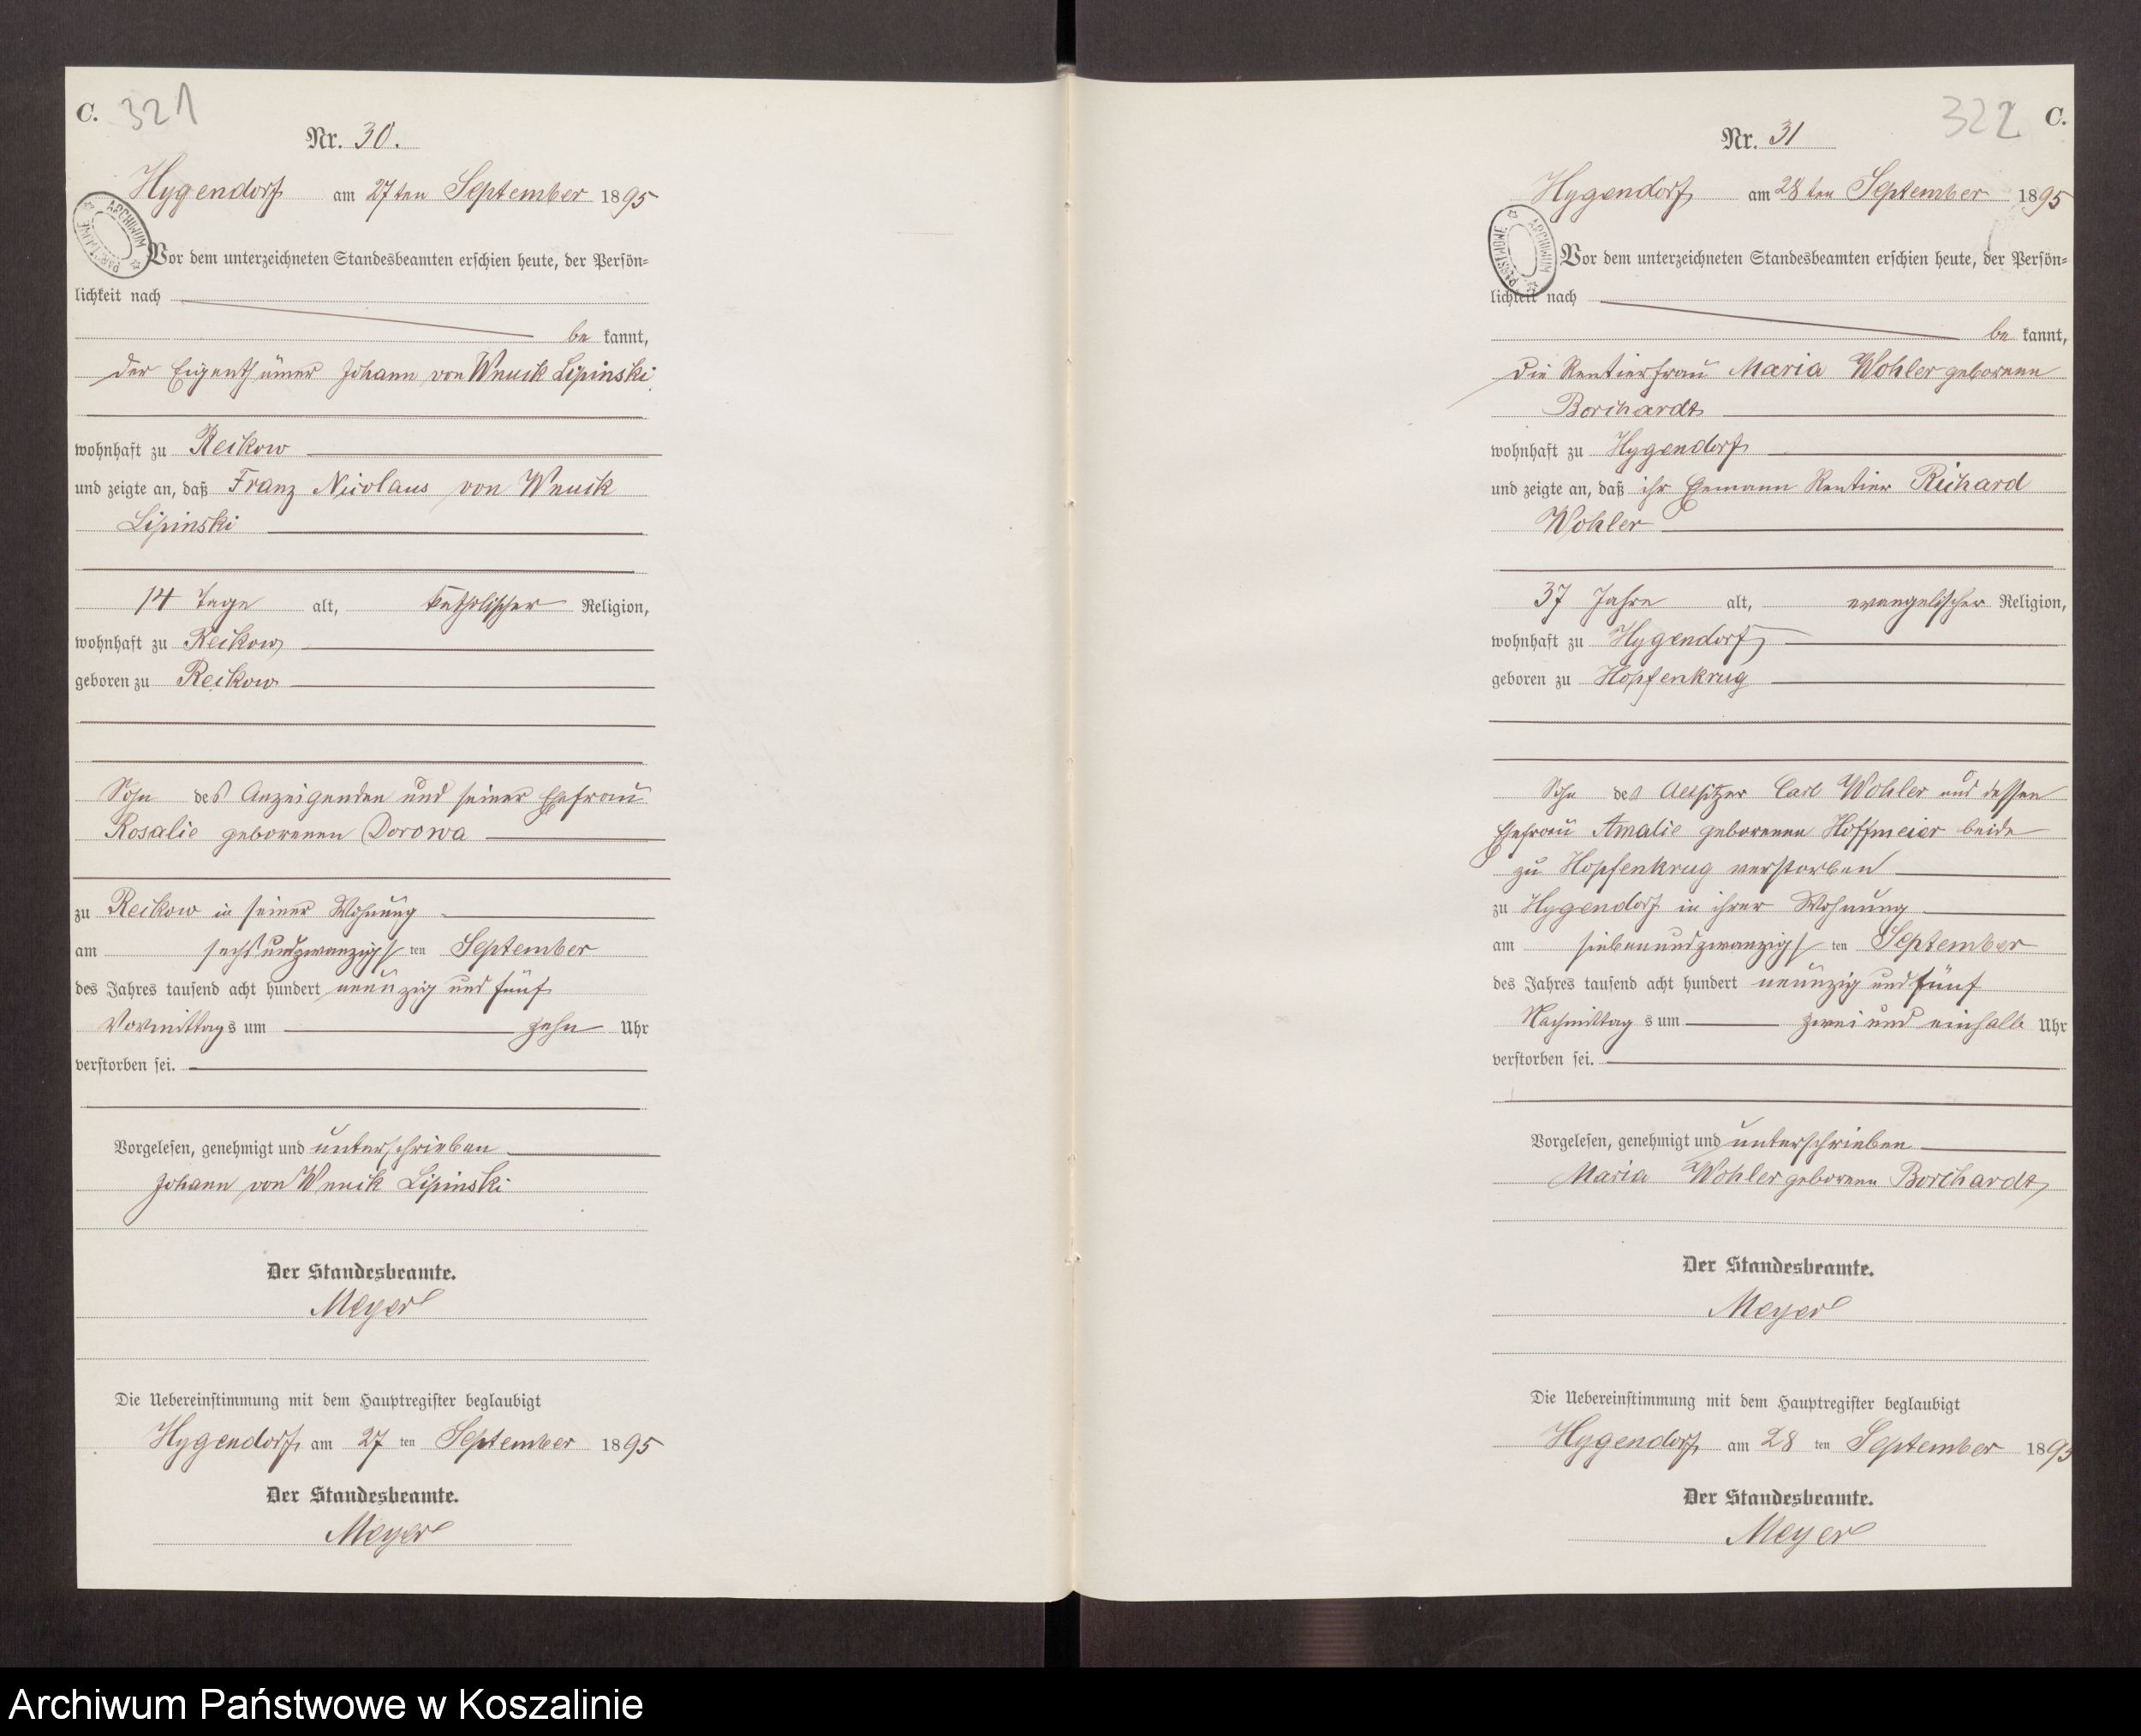 C. 321
Nr. 30.
Hygendorf am 27ten September 1895
ARCHIWUM PAŃSTWOWE
Vor dem unterzeichneten Standesbeamten erschien heute, der Persön=
lichkeit nach
be kannt,
der Eigenthümer Johann von Wnuik Lipinski
wohnhaft zu Reikow
und zeigte an, daß Franz Nicolaus von Wnuik
Lipinski
14 Tage alt, katholischer Religion,
wohnhaft zu Reikow
geboren zu Reikow
Sohn des Anzeigenden und seiner Ehefrau
Rosalie geborenen Dorowa
zu Reikow in seiner Wohnung
am sechsundzwanzigsten September
des Jahres tausend acht hundert neunzig und fünf
Vormittags um zehn Uhr
verstorben sei.
Vorgelesen, genehmigt und unterschrieben
Johann von Wnuik Lipinski
Der Standesbeamte.
Meyer
Die Uebereinstimmung mit dem Hauptregister beglaubigt
Hygendorf am 27 ten September 1895
Der Standesbeamte.
Meyer
322 C.
Nr. 31
Hygendorf am 28ten September 1895
ARCHIWUM PAŃSTWOWE
Vor dem unterzeichneten Standesbeamten erschien heute, der Persön=
lichkeit nach
be kannt,
die Rentierfrau Maria Wohler geborenen
Borchardt
wohnhaft zu Hygendorf
und zeigte an, daß ihr Ehemann Rentier Richard
Wohler
37 Jahre alt, evangelischer Religion,
wohnhaft zu Hygendorf
geboren zu Hopfenkrug
Sohn des Carl Wohler und dessen
Ehefrau Amalie geborenen Hoffmeier beide
zu Hopfenkrug verstorben
zu Hygendorf in ihrer Wohnung
am siebenundzwanzigsten September
des Jahres tausend acht hundert neunzig und fünf
Nachmittags um zwei und einhalb Uhr
verstorben sei.
Vorgelesen, genehmigt und unterschrieben
Maria Wohler geborenen Borchardt
Der Standesbeamte.
Meyer
Die Uebereinstimmung mit dem Hauptregister beglaubigt
Hygendorf am 28 ten September 1895
Der Standesbeamte.
Meyer
Archiwum Państwowe w Koszalinie